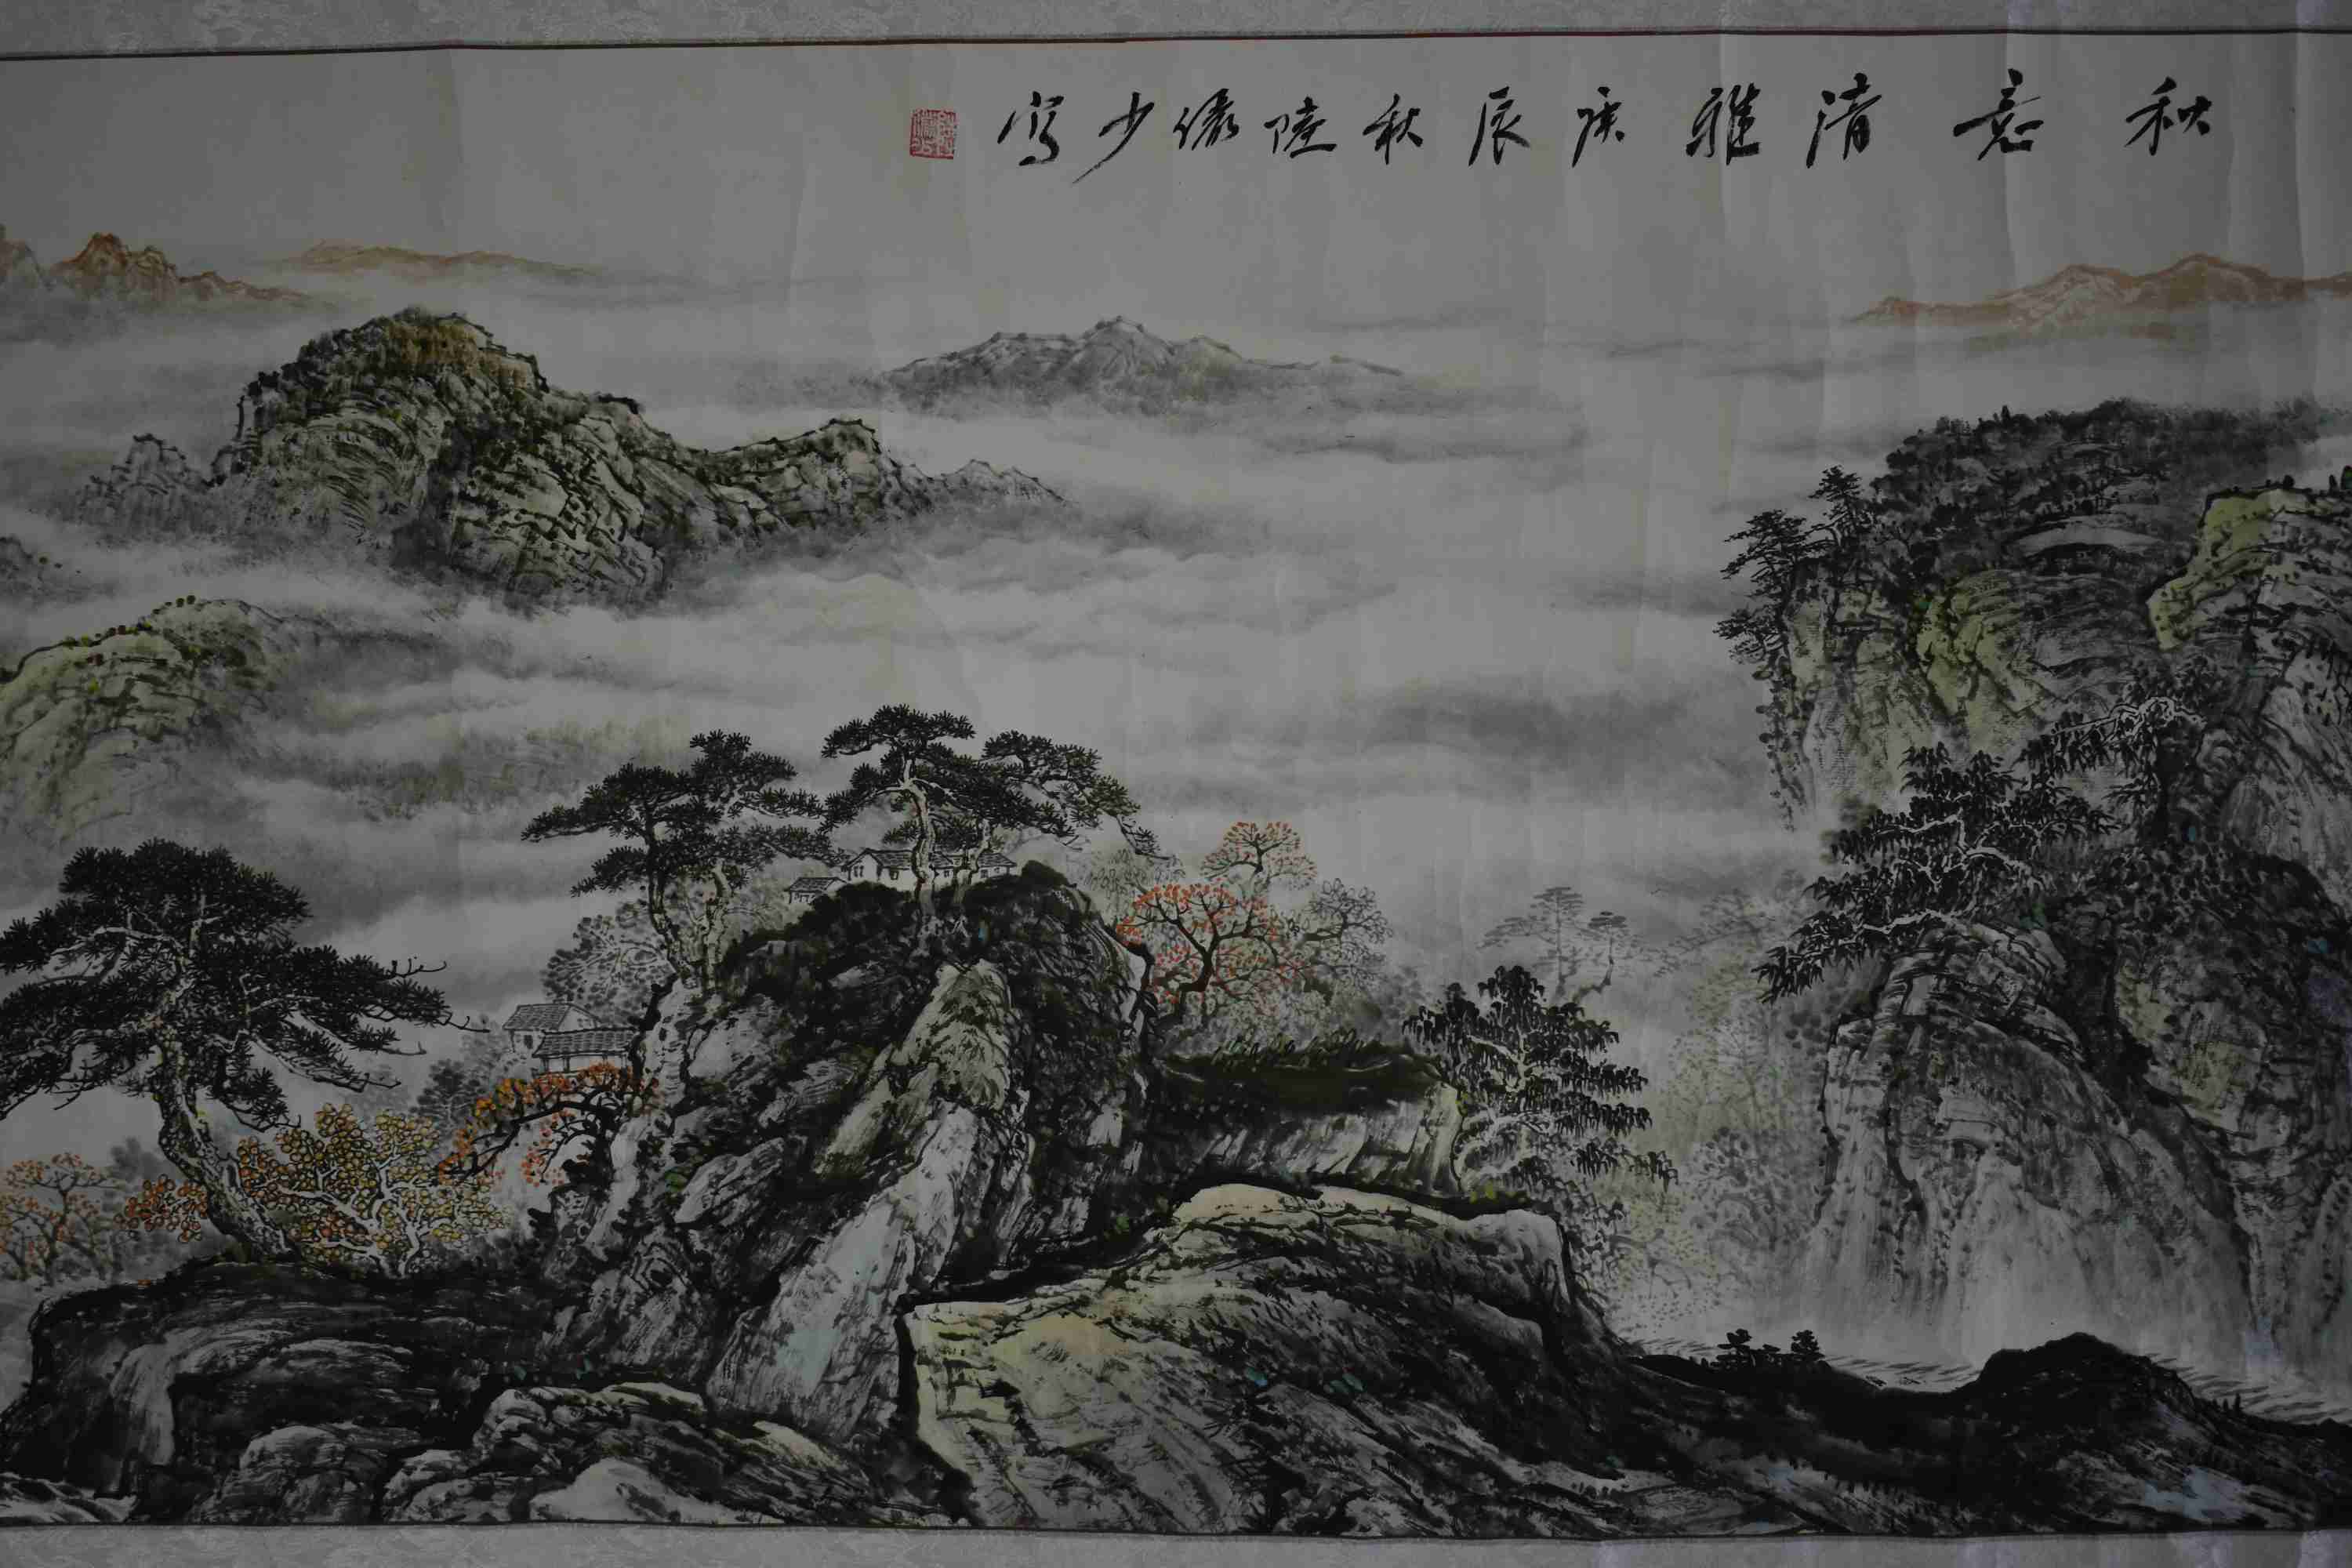 秋意清雅庚辰秋陸儒少寫